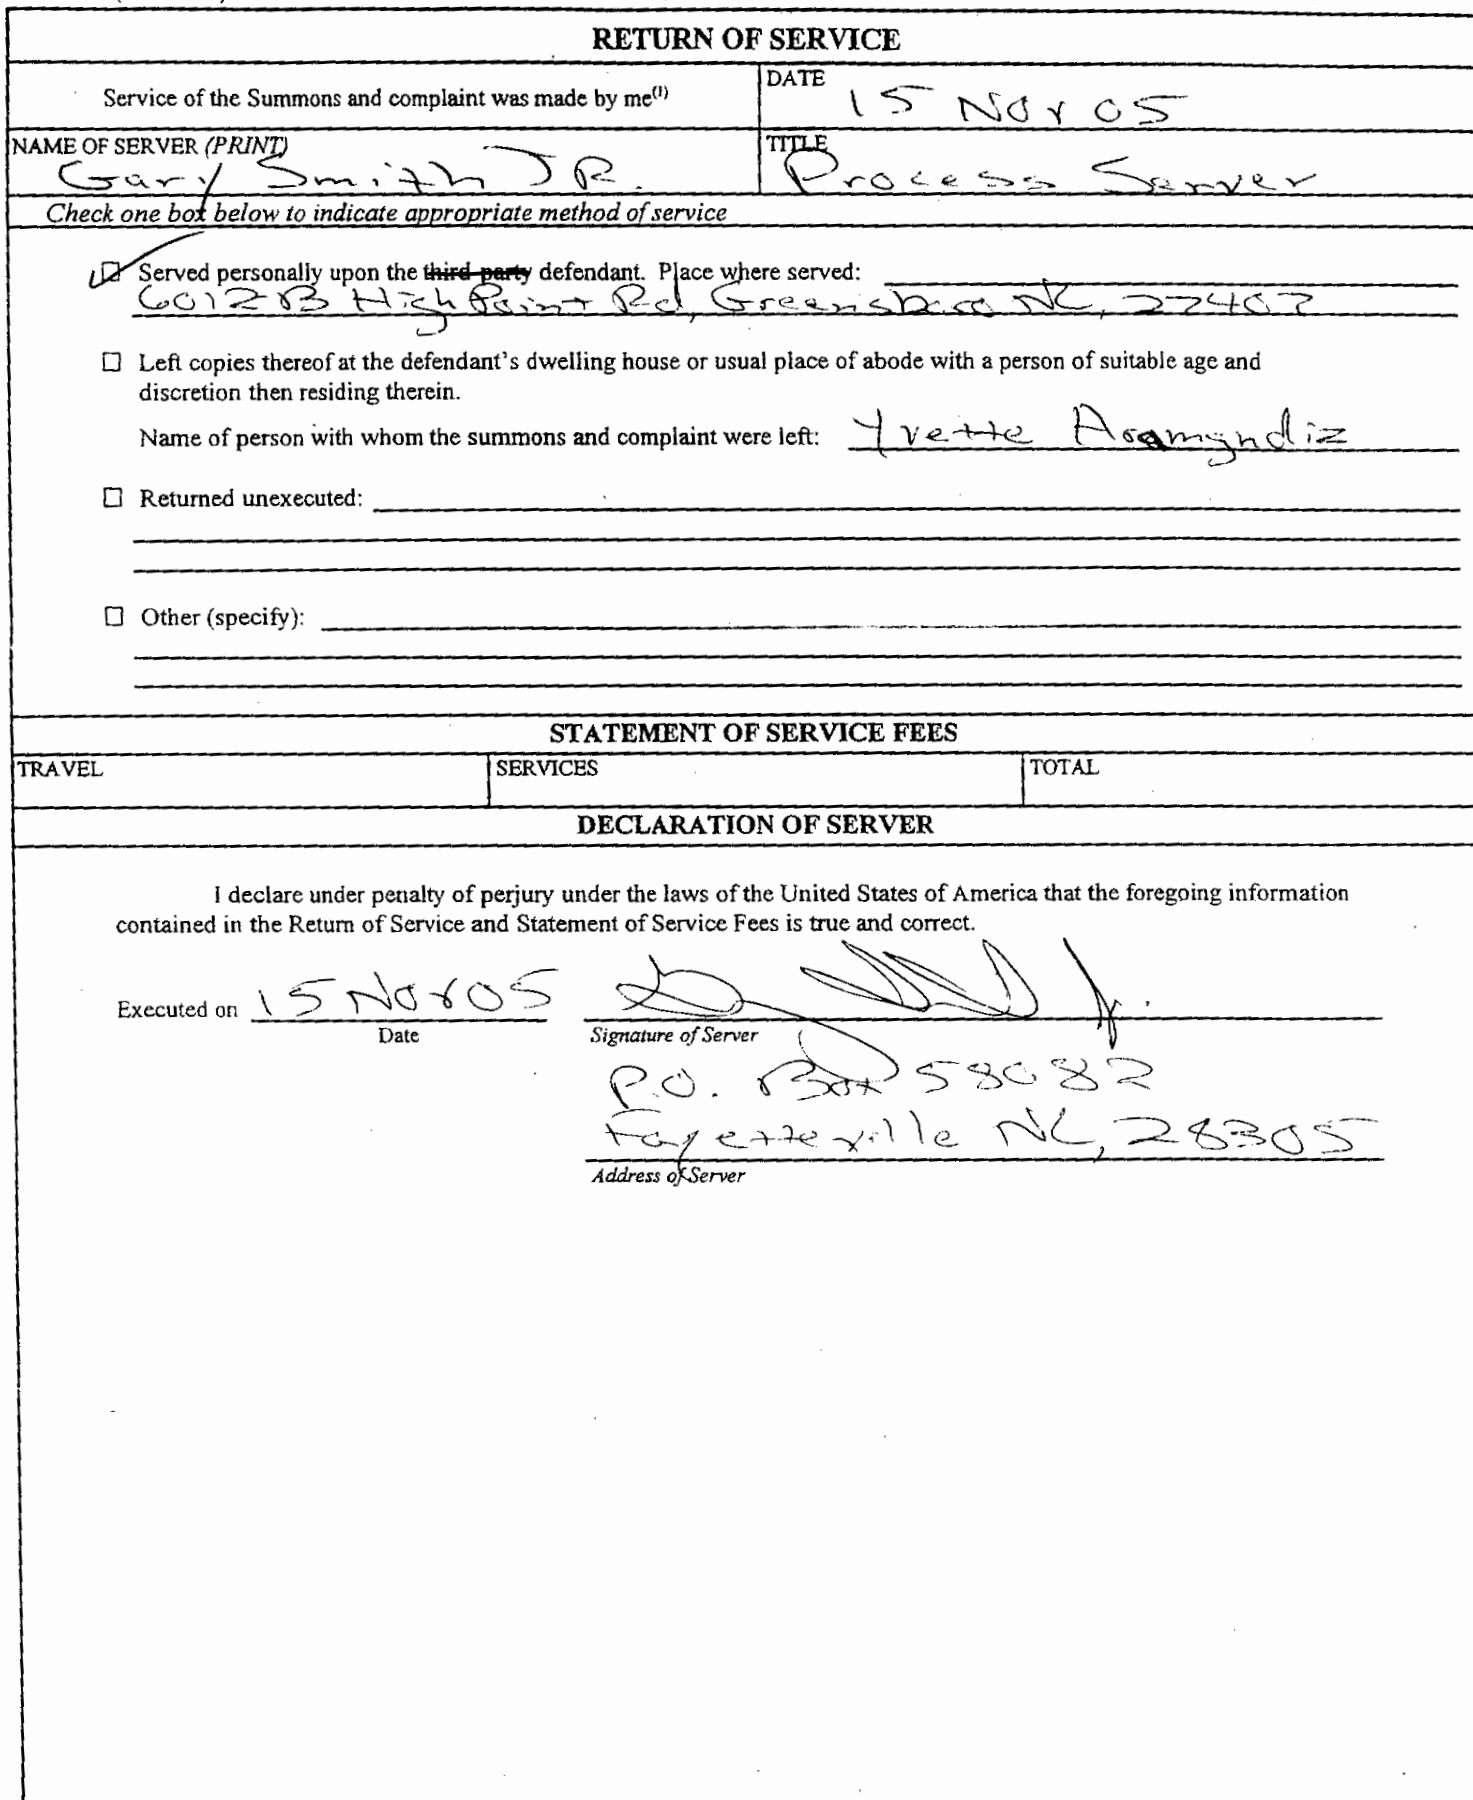 RETURN OF SERVICE
Service of the Summons and complaint was made by me(1)
DATE
15 Nov 05
NAME OF SERVER (PRINT)
Gary Smith JR.
TITLE
Process Server
Check one box below to indicate appropriate method of service
☑ Served personally upon the third-party defendant. Place where served:
6012 B High Point Rd, Greensboro NC, 27407
☐ Left copies thereof at the defendant's dwelling house or usual place of abode with a person of suitable age and
discretion then residing therein.
Name of person with whom the summons and complaint were left: Yvette
☐ Returned unexecuted:
☐ Other (specify):
STATEMENT OF SERVICE FEES
TRAVEL
SERVICES
TOTAL
DECLARATION OF SERVER
I declare under penalty of perjury under the laws of the United States of America that the foregoing information
contained in the Return of Service and Statement of Service Fees is true and correct.
Executed on 15 Nov 05
Date
Jr.
Signature of Server
P.O. Box 58082
Fayetteville NC, 28305
Address of Server